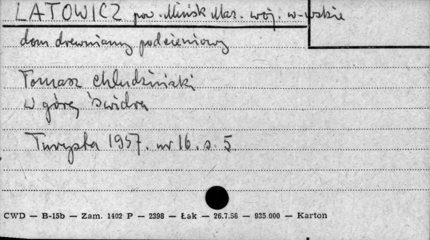 LATOWICZ pow. Mińsk Maz. woj. w-wskie
dom drewniany podcieniowy
Tomasz Chludziński
W górę Świdra
Turysta 1957. nr 16. s. 5
CWD — B-15b — Zam. 1402 P — 2398 — Łak — 26.7.56 — 935.000 — Karton